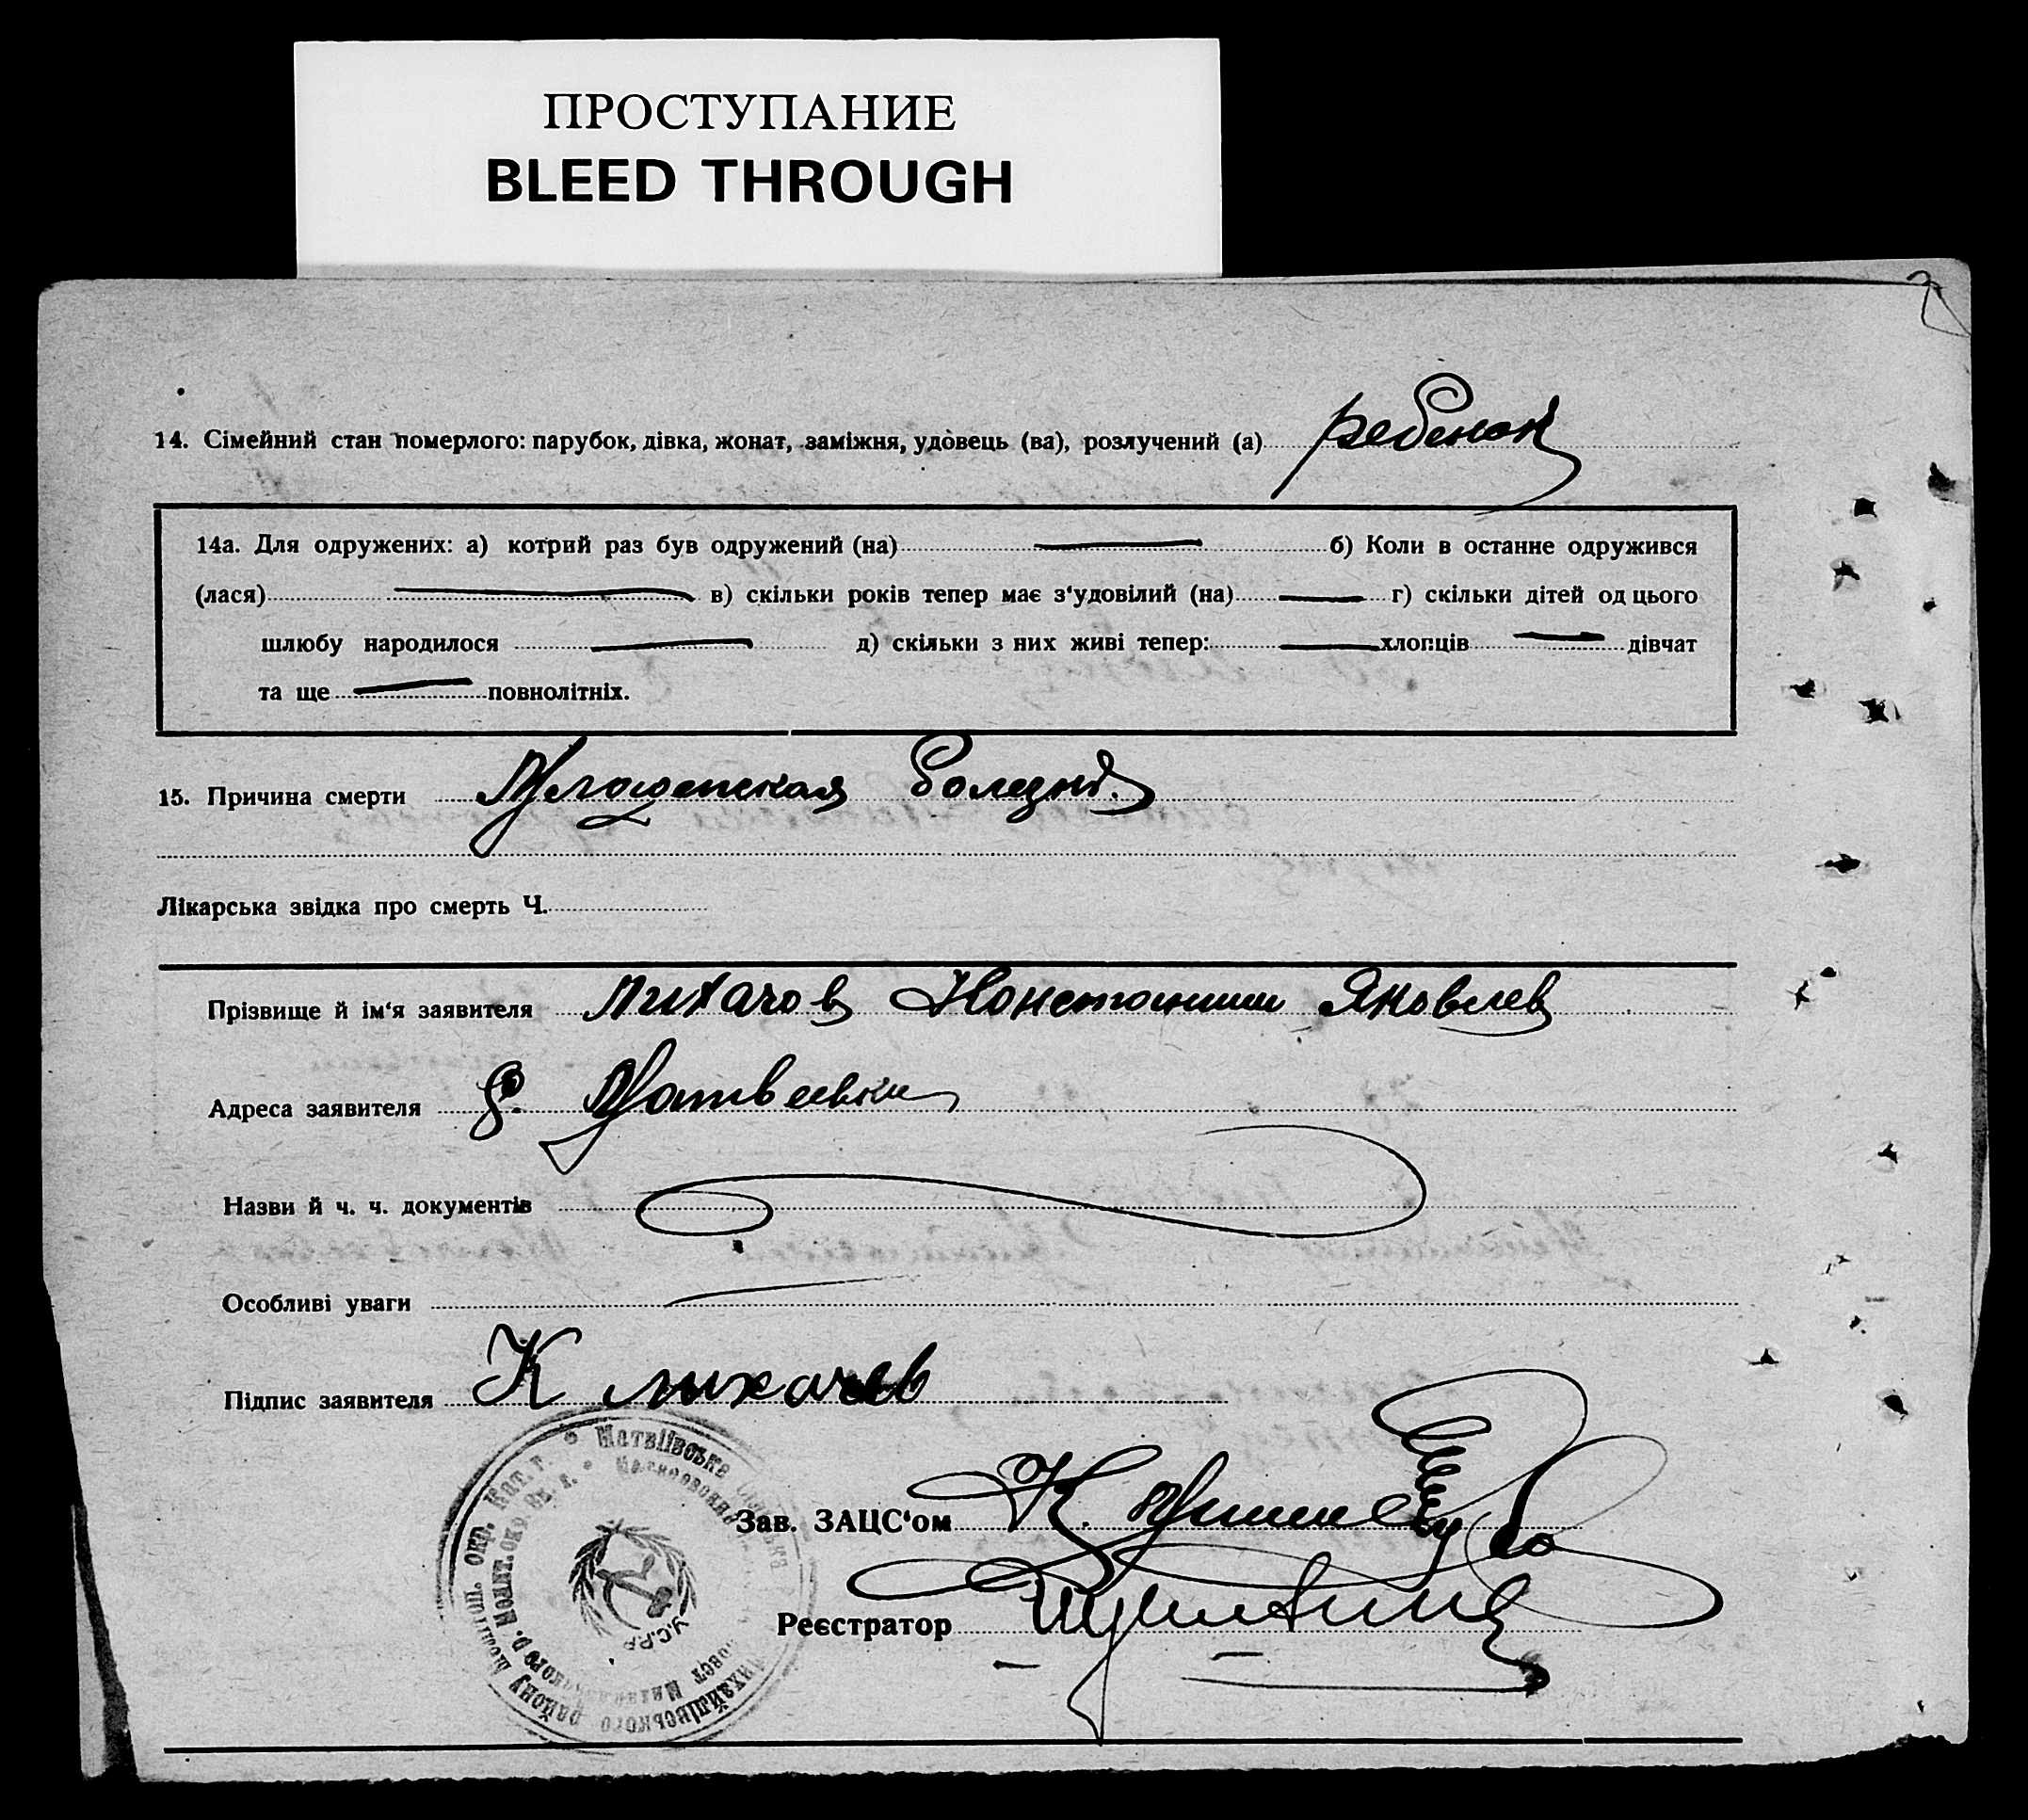 ПРОСТУПАНИЕ
BLEED THROUGH
14. Сімейний стан померлого: парубок, дівка, жонат, заміжня, удовець (ва), розлучений (а) ребенок
14а. Для одружених: а) котрий раз був одружений (на) б) Коли в останне одружився
(лася) в) скільки років тепер має з‘удовілий (на) г) скільки дітей од цього
шлюбу народилося д) скільки з них живі тепер: хлопців дівчат
та ще повнолітніх.
15. Причина смерти болезнь
Лікарська звідка про смерть Ч.
Прізвище й ім‘я заявителя Лихачов Константин Яковлев
Адреса заявителя с. Матвеевки
Назви й ч. ч. документів
Особливі уваги
Підпис заявителя К Лихачев
Матвіївська Михайлівського району Меліт. окр. Кат. г.
У.С.Р.Р.
Зав. ЗАЦС‘ом К.
Реєстратор